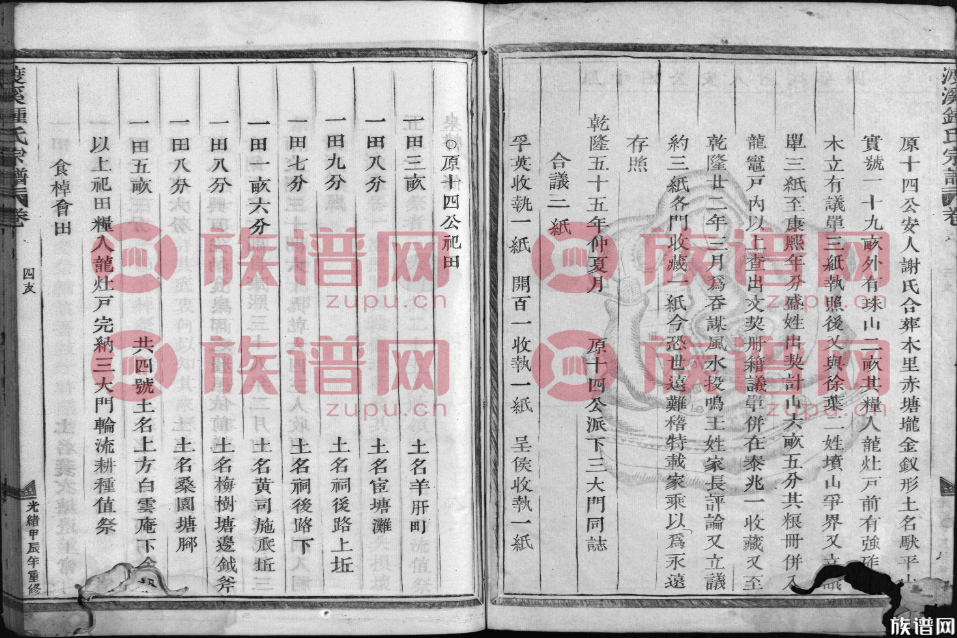 原十四公安人謝氏合葬木里赤塘壠金釵形土名馱平山
實號一十九畝外有珠山二畝其糧入龍灶戸前有強
木立有議單三紙執照後又與徐葉二姓墳山爭界又立議
單三紙至康熙年分盛姓出契計山六畝五分其糧冊併入
龍竈戸內以上查出文契册籍議單併在泰兆一收藏又至
乾隆廿二年三月為吞謀風水投鳴王姓家長評論又立議
約三紙各門收藏一紙今恐世遠難稽特載家乘以為永遠
存照
乾隆五十五年仲夏月 原十四公派下三大門同誌
合議三紙
孚英收執一紙 開百一收執一紙 呈侯收執一紙
原十四公祀田
一田三畝 土名羊肝町
一田八分 土名宦塘灘
一田九分 土名祠後路上坵
一田七分 土名祠後路下
一田一畝六分 土名黃司施底坵
一田八分 土名梅樹塘邊鉞斧
一田八分 土名桑園塘腳
一田五畝 共四號土名上方白雲庵下
一以上祀田糧入龍灶戸完納三大門輪流耕種值祭
食棹會田
渡溪鍾氏宗譜
卷
四支
光緒甲辰年重修
族谱网
zupu.cn
族谱网
zupu.cn
族谱网
zupu.cn
族谱网
zupu.cn
族谱网